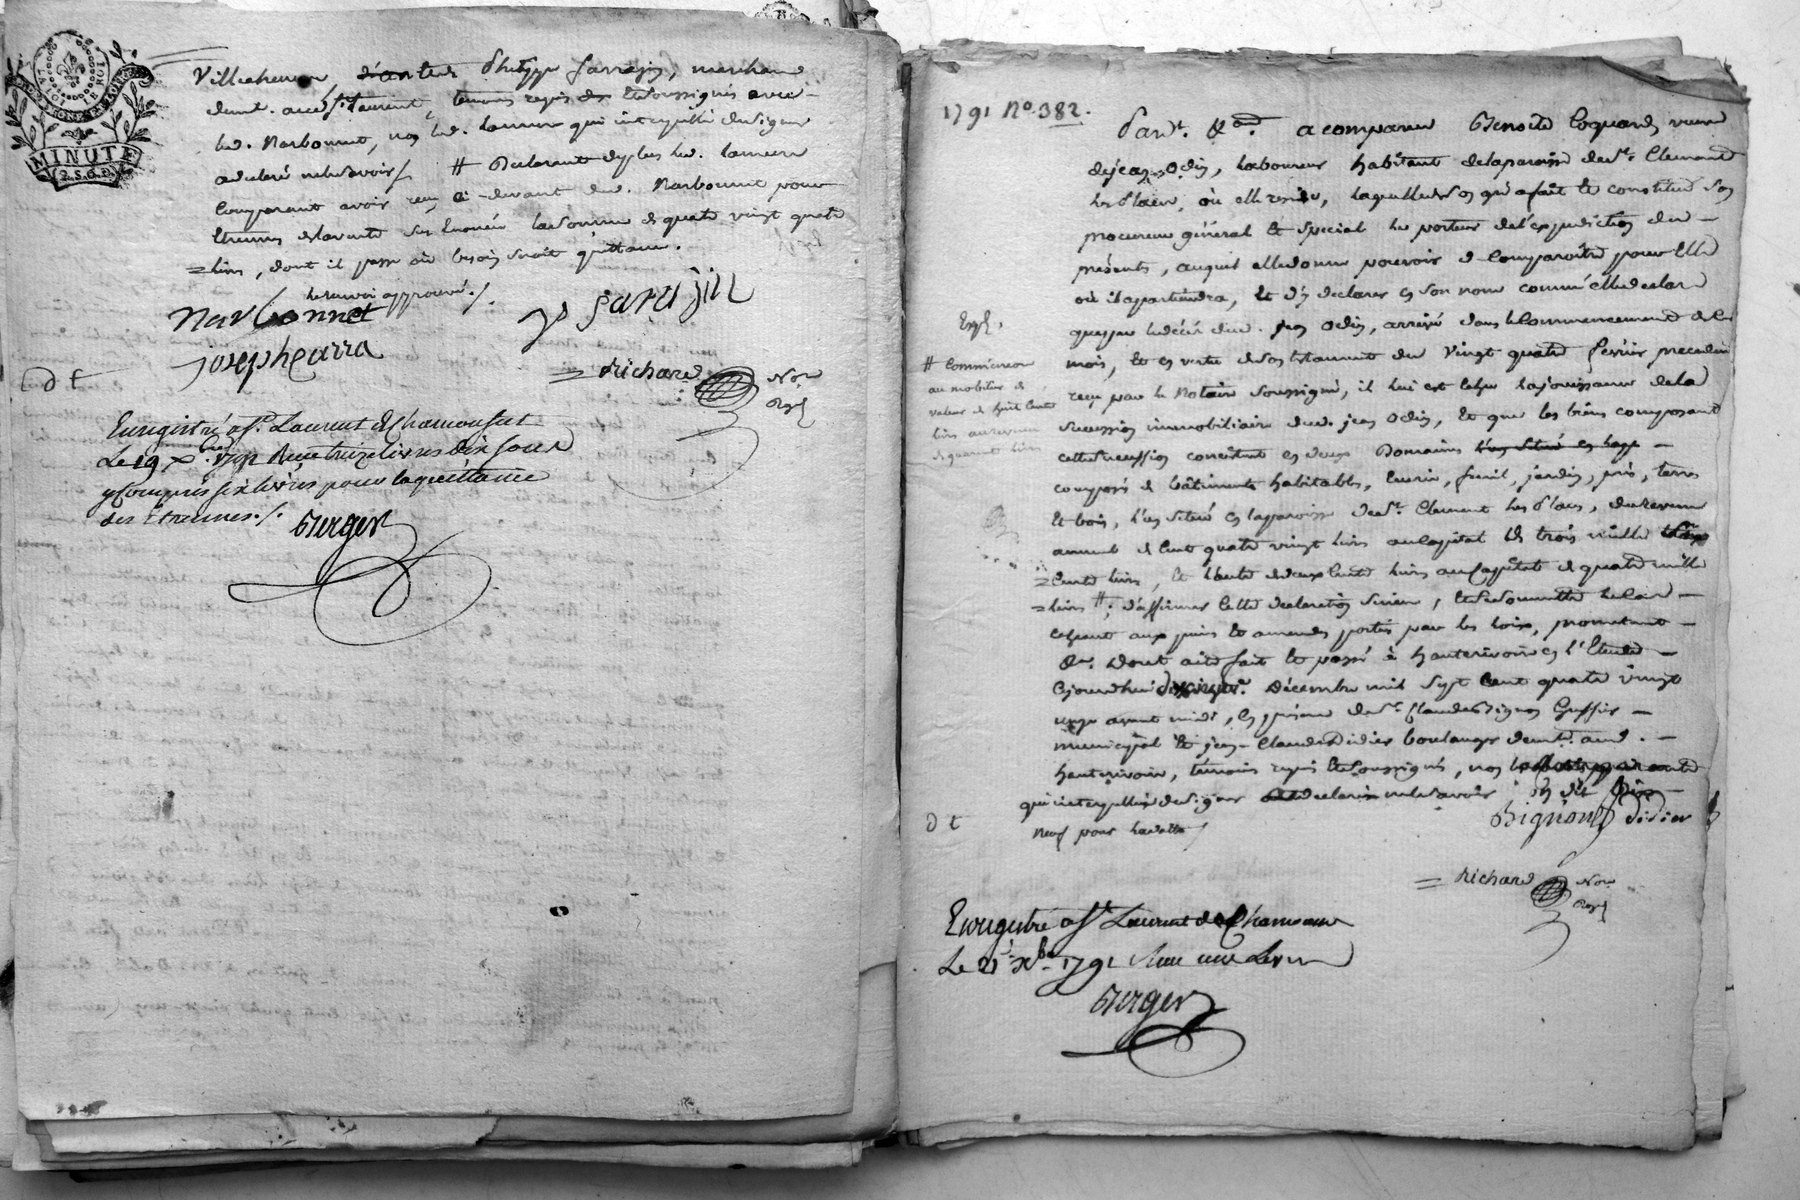 MINUTE
2.S.6.D.
Philippe sarrazin, marchand
demt. audt. st. Laurent, temoins requis et soussignés avec
led. Narbonnet, non led. qui interpellé de signer
a declaré ne le savoir
Comparant avoir reçu ci-devant dud. Narbonnet pour
Etrennes de la vente sus Enoncée la somme de quatre vingt quatre
=livres, dont il passe où besoin seroit quittance.
le renvoi approuvé ./.
Narbonnet
Joseph
Richard
Nore
Royl
D t
Enregistré a st. Laurent de Chamousset
Le 19 Xbre 1791 Reçu treize livres dix sous
y Compris six livres pour la quittance
des Etrennes ./.
Berger
1791 No. 382.
Pardt. &a. a comparu Benoite Coquard, veuve
de jean Odin, laboureur habitant de la paroisse de st. Clement
les places, où elle reside, laquelle de son gré a fait et constitué son
procureur général et special le porteur de l'expedition des
présentes, auquel elle donne pouvoir de Comparoitre pour Elle
où il appartiendra, Et d'y declarer en son nom comme elle declare
que par le décès dud. jean Odin, arrivé dans le Commencement de ce
mois, Et en vertu de son testament du vingt quatre fevrier precedent
reçu par le Notaire soussigné, il lui est echu la jouissance de la
succession immobiliaire dud. jean odin, Et que les biens composant
cette succession consistent en deux Domaines
composés de bâtiments habitables, Cuvier, fenil, jardin, prés, terres
Et bois, l'un situé en la paroisse de st. Clement les places, du revenu
annuel de Cent quatre vingt livres au capital de trois mille
=Cents livres, et l'autre de deux Cents livres au Capital de quatre mille
=livres #; d'affirmer cette declaration sincere, et se soumettre le cas
echeant aux peines et amendes portées par les loix, promettant
&a. Dont acte fait et passé à hauterivoire en l'Etude
cejourd'hui Décembre mil sept Cent quatre vingt
onze avant midi, En presence de sr. Claude Bignon Greffier
municipal Et jean-Claude Didier boulanger demt. aud.
hauterivoire, temoins requis et soussignés, non
qui interpellée de signer a declaré ne le savoir
neuf pour
Expé.
au mobilier de
valeur de huit Cents
livres au revenu
de quarante livres
D t
Bignon Didier
Richard
Nore
Royl
Enregistré a st Laurent de Chamousset
Le 21 Xbre 1791 Reçu
Berger